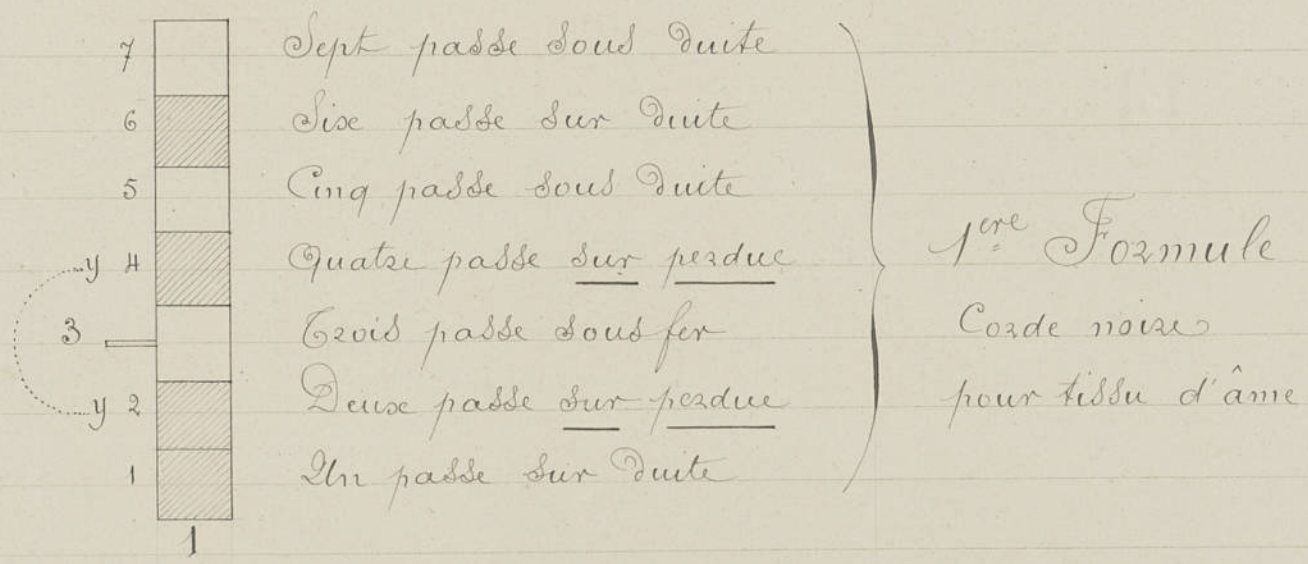 7 Sept passe sous duite
6 Six passe sur duite
5 Cinq passe sous duite
y 4 Quatre passe sur perdue
3 Trois passe sous fer
y 2 Deux passe sur perdue
1 Un passe sur duite
1
1ere Formule
Corde noire
pour tissu d'âme